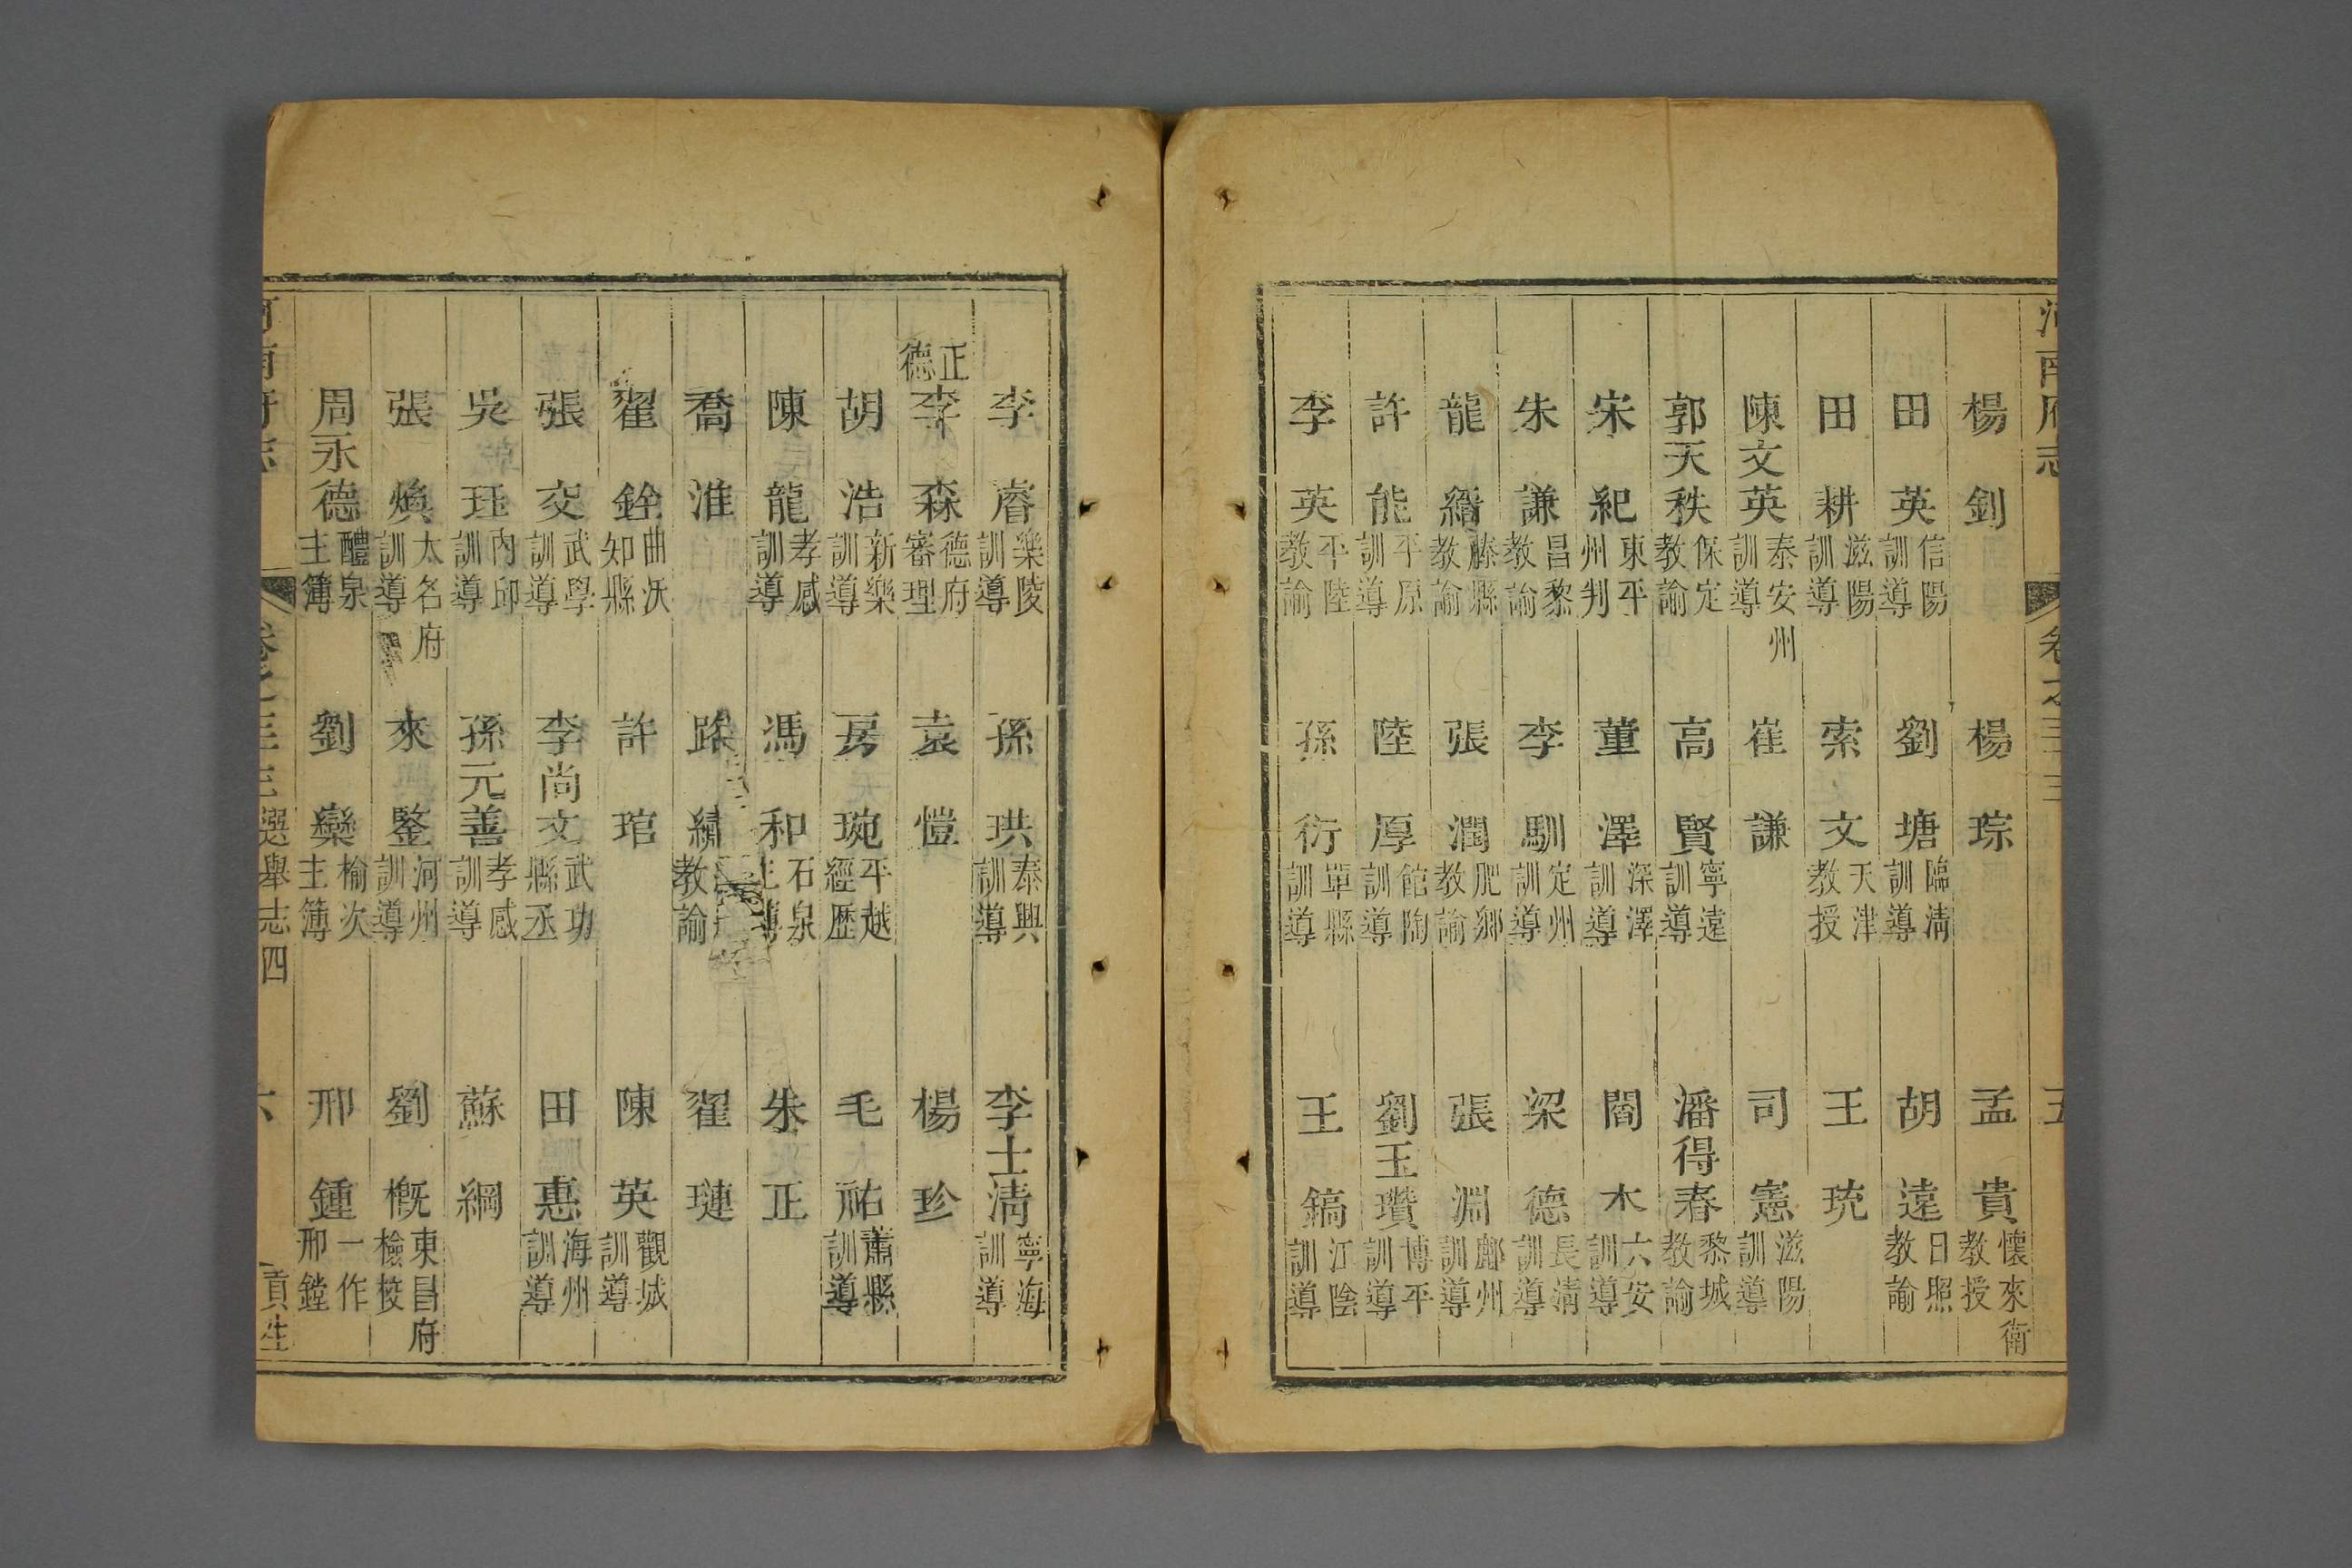 河南府志 卷之三十三 五
楊釗 楊琮 孟貴懷來衛教授
田英信陽訓導 劉塘臨清訓導 胡遠日照教諭
田耕滋陽訓導 索文天津教授 王珫
陳文英泰安州訓導 崔謙 司憲滋陽訓導
郭天秩保定教諭 高賢寧遠訓導 潘得春黎城教諭
宋紀東平州判 董澤深澤訓導 閻木六安訓導
朱謙昌黎教諭 李馴定州訓導 梁德長清訓導
龍縉滕縣教諭 張潤肥鄉教諭 張淵鄜州訓導
許能平原訓導 陸厚館陶訓導 劉玉瓚博平訓導
李英平陸教諭 孫衍單縣訓導 王鎬江陰訓導
李睿樂陵訓導 孫珙泰興訓導 李士清寧海訓導
正德李森德府審理 袁愷 楊珍
胡浩新樂訓導 房琬平越經歷 毛祐蕭縣訓導
陳龍孝感訓導 馮和石泉主簿 朱正
喬淮 路繡教諭 翟璉
翟銓曲沃知縣 許琯 陳英觀城訓導
張交武學訓導 李尚文武功縣丞 田惠海州訓導
吳珏內邱訓導 孫元善孝感訓導 蘇綱
張煥大名府訓導 來鑒河州訓導 劉概東昌府檢校
周永德醴泉主簿 劉欒榆次主簿 邢鍾一作邢鏜
河南府志 卷之三十三 選舉志四 貢生 六